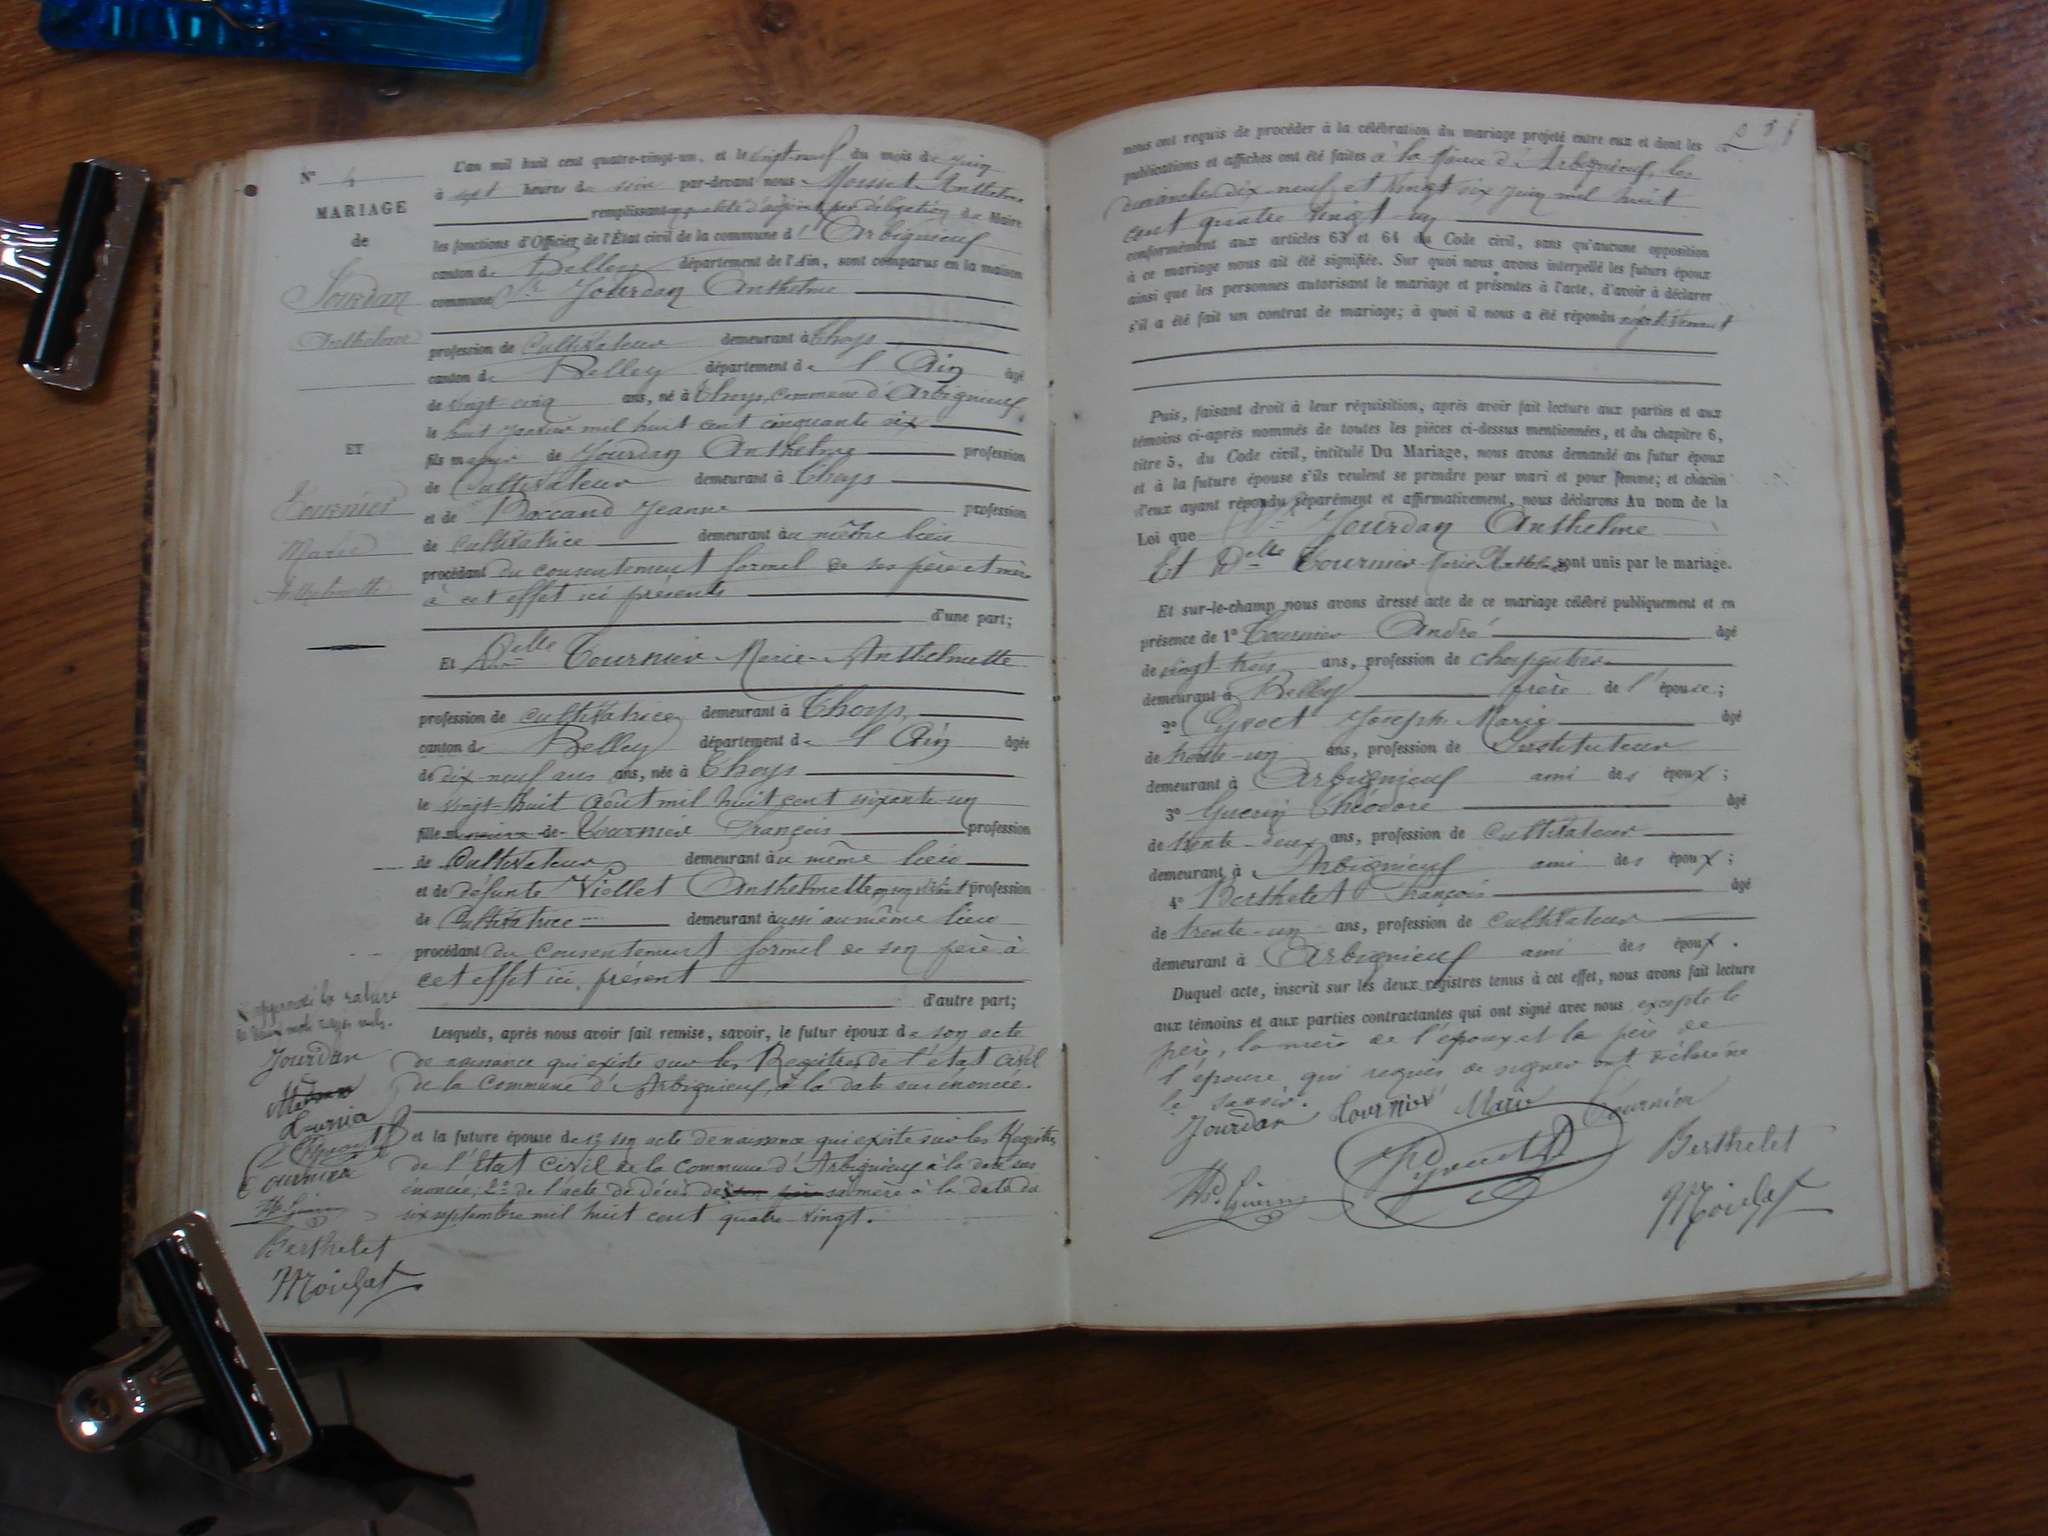 N° 4
MARIAGE
de
Jourdan
Anthelme
ET
Tournier
Marie
Anthelmette
L'an mil huit cent quatre-vingt-un, et le vingt-neuf du mois de juin
à sept heures du soir par-devant nous
remplissant par délégation du Maire
les fonctions d'Officier de l'État civil de la commune d'Arbignieu
canton de Belley département de l'Ain, sont comparus en la maison
commune Sr Jourdan Anthelme
profession de cultivateur demeurant à Thoys
canton de Belley département de l'Ain âgé
de vingt-cinq ans, né à Thoys, commune d'Arbignieu
le huit janvier mil huit cent cinquante six
fils majeur de Jourdan Anthelme profession
de Cultivateur demeurant à Thoys
et de Baccand Jeanne profession
de Cultivatrice demeurant au même lieu
procédant du consentement formel de ses père et mère
à cet effet ici présents
d'une part;
Et Delle Tournier Marie Anthelmette
profession de cultivatrice demeurant à Thoys,
canton de Belley département de l'Ain âgée
de dix-neuf ans ans, née à Thoys
le vingt-huit août mil huit cent soixante-un
fille mineure de Tournier François profession
de Cultivateur demeurant au même lieu
et de défunte Viollet Anthelmette en son vivant profession
de Cultivatrice demeurant aussi au même lieu
procédant du consentement formel de son père à
cet effet ici présent
d'autre part;
Lesquels, après nous avoir fait remise, savoir, le futur époux de son acte
de naissance qui existe sur les Registres de l'état civil
de la Commune d'Arbignieu, à la date sus énoncée.
et la future épouse de 1° son acte de naissance qui existe sur les Registres
de l'état civil de la commune d'Arbignieu à la date sus
énoncée; 2° de l'acte de décès de son père sa mère à la date du
six septembre mil huit cent quatre-vingt.
approuvé la rature
de deux mots rayés nuls.
Jourdan
Tournier
Tournier
Th. Guerin
Berthelet
nous ont requis de procéder à la célébration du mariage projeté entre eux et dont les
publications et affiches ont été faites à la Mairie d'Arbignieu, les
dimanches dix-neuf et vingt six juin mil huit
cent quatre vingt-un
conformément aux articles 63 et 64 du Code civil, sans qu'aucune opposition
à ce mariage nous ait été signifiée. Sur quoi nous avons interpellé les futurs époux
ainsi que les personnes autorisant le mariage et présentes à l'acte, d'avoir à déclarer
s'il a été fait un contrat de mariage; à quoi il nous a été répondu négativement
Puis, faisant droit à leur réquisition, après avoir fait lecture aux parties et aux
témoins ci-après nommés de toutes les pièces ci-dessus mentionnées, et du chapitre 6,
titre 5, du Code civil, intitulé Du Mariage, nous avons demandé au futur époux
et à la future épouse s'ils veulent se prendre pour mari et pour femme; et chacun
d'eux ayant répondu séparément et affirmativement, nous déclarons Au nom de la
Loi que Sr Jourdan Anthelme
Et Delle Tournier Marie Anthelmette sont unis par le mariage.
Et sur-le-champ nous avons dressé acte de ce mariage célébré publiquement et en
présence de 1° Tournier André âgé
de vingt-trois ans, profession de charpentier
demeurant à Belley frère de l'épouse;
2° Joseph Marie âgé
de trente-un ans, profession de Instituteur
demeurant à Arbignieu ami des époux;
3° Guerin Théodore âgé
de trente-deux ans, profession de Cultivateur
demeurant à Arbignieu ami des époux;
4° Berthelet François âgé
de trente-un ans, profession de cultivateur
demeurant à Arbignieu ami des époux.
Duquel acte, inscrit sur les deux registres tenus à cet effet, nous avons fait lecture
aux témoins et aux parties contractantes qui ont signé avec nous excepté le
père, la mère de l'époux et le père de
l'épouse qui requis de signer ont déclaré ne
le savoir.
Jourdan Tournier Marie Tournier
Th. Guerin Berthelet